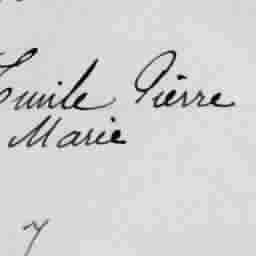 Emile Pierre
Marie